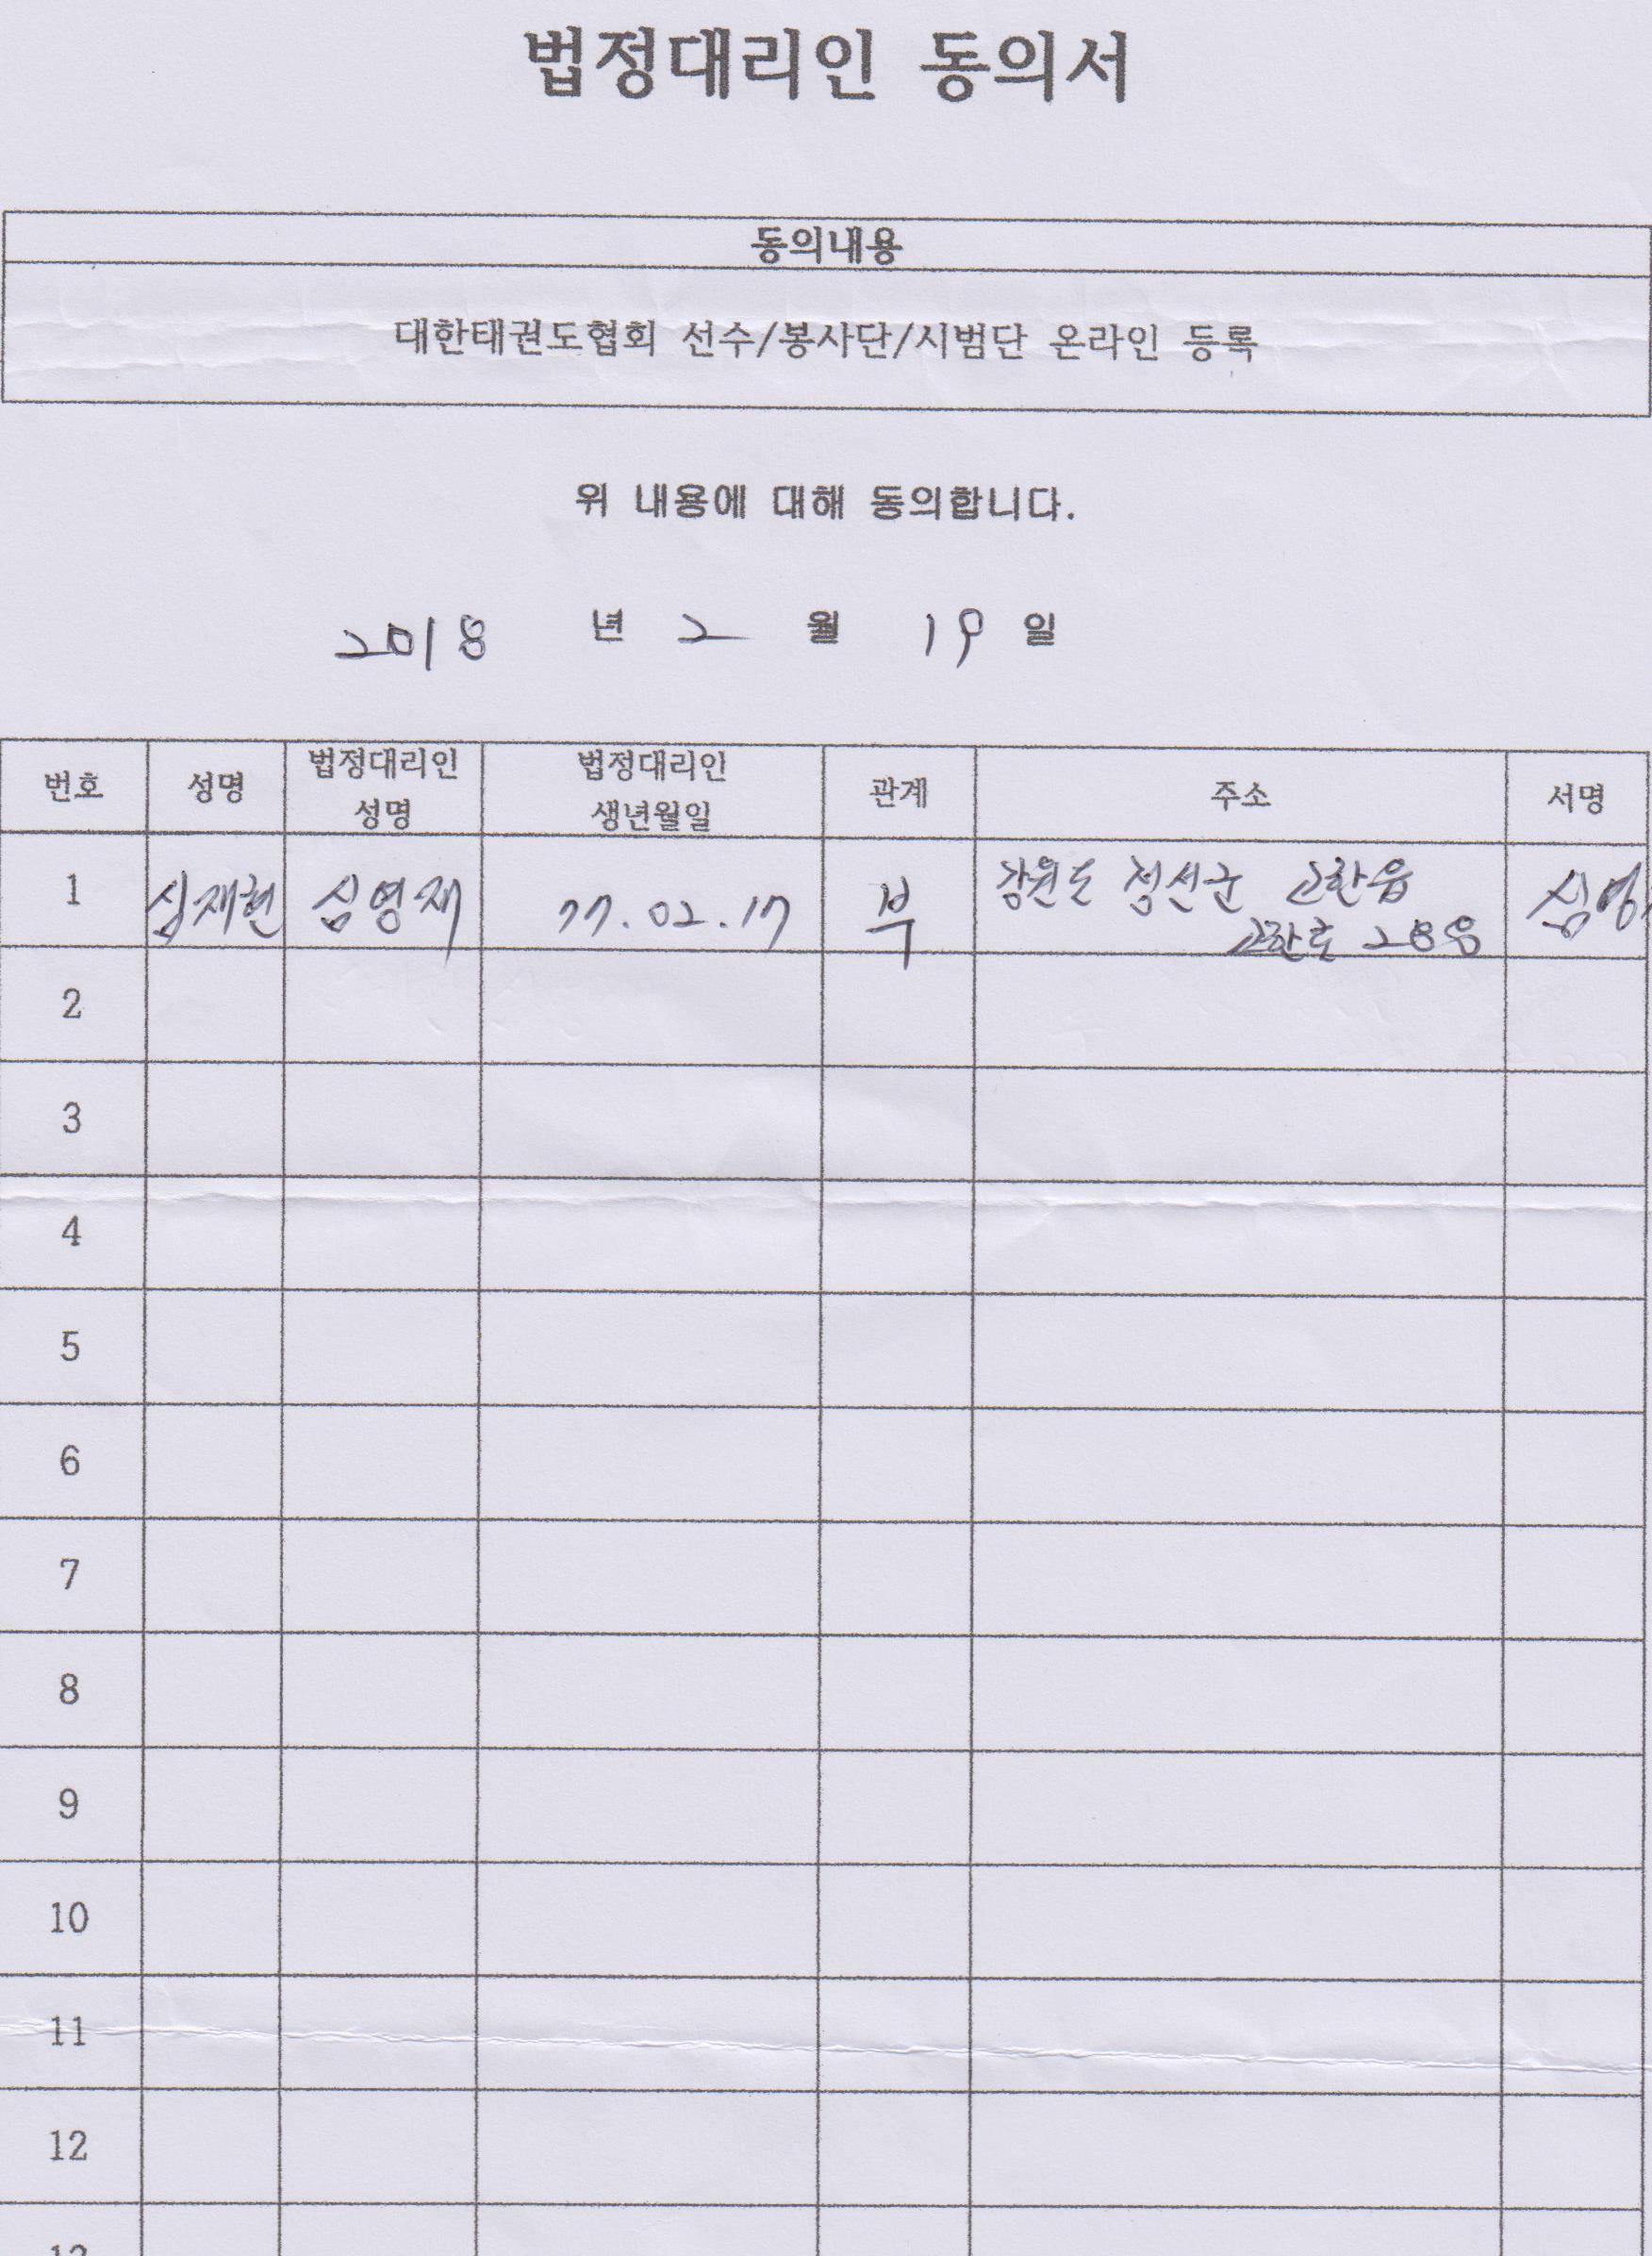 법정대리인 동의서
동의내용
대한태권도협회 선수/봉사단/시범단 온라인 등록
위 내용에 대해 동의합니다.
2018 년 2 월 19 일
번호 성명 법정대리인 성명 법정대리인 생년월일 관계 주소 서명
1 심재현 심영재 77.02.17 부 강원도 정선군 고한읍
고한로 288
심영
2
3
4
5
6
7
8
9
10
11
12